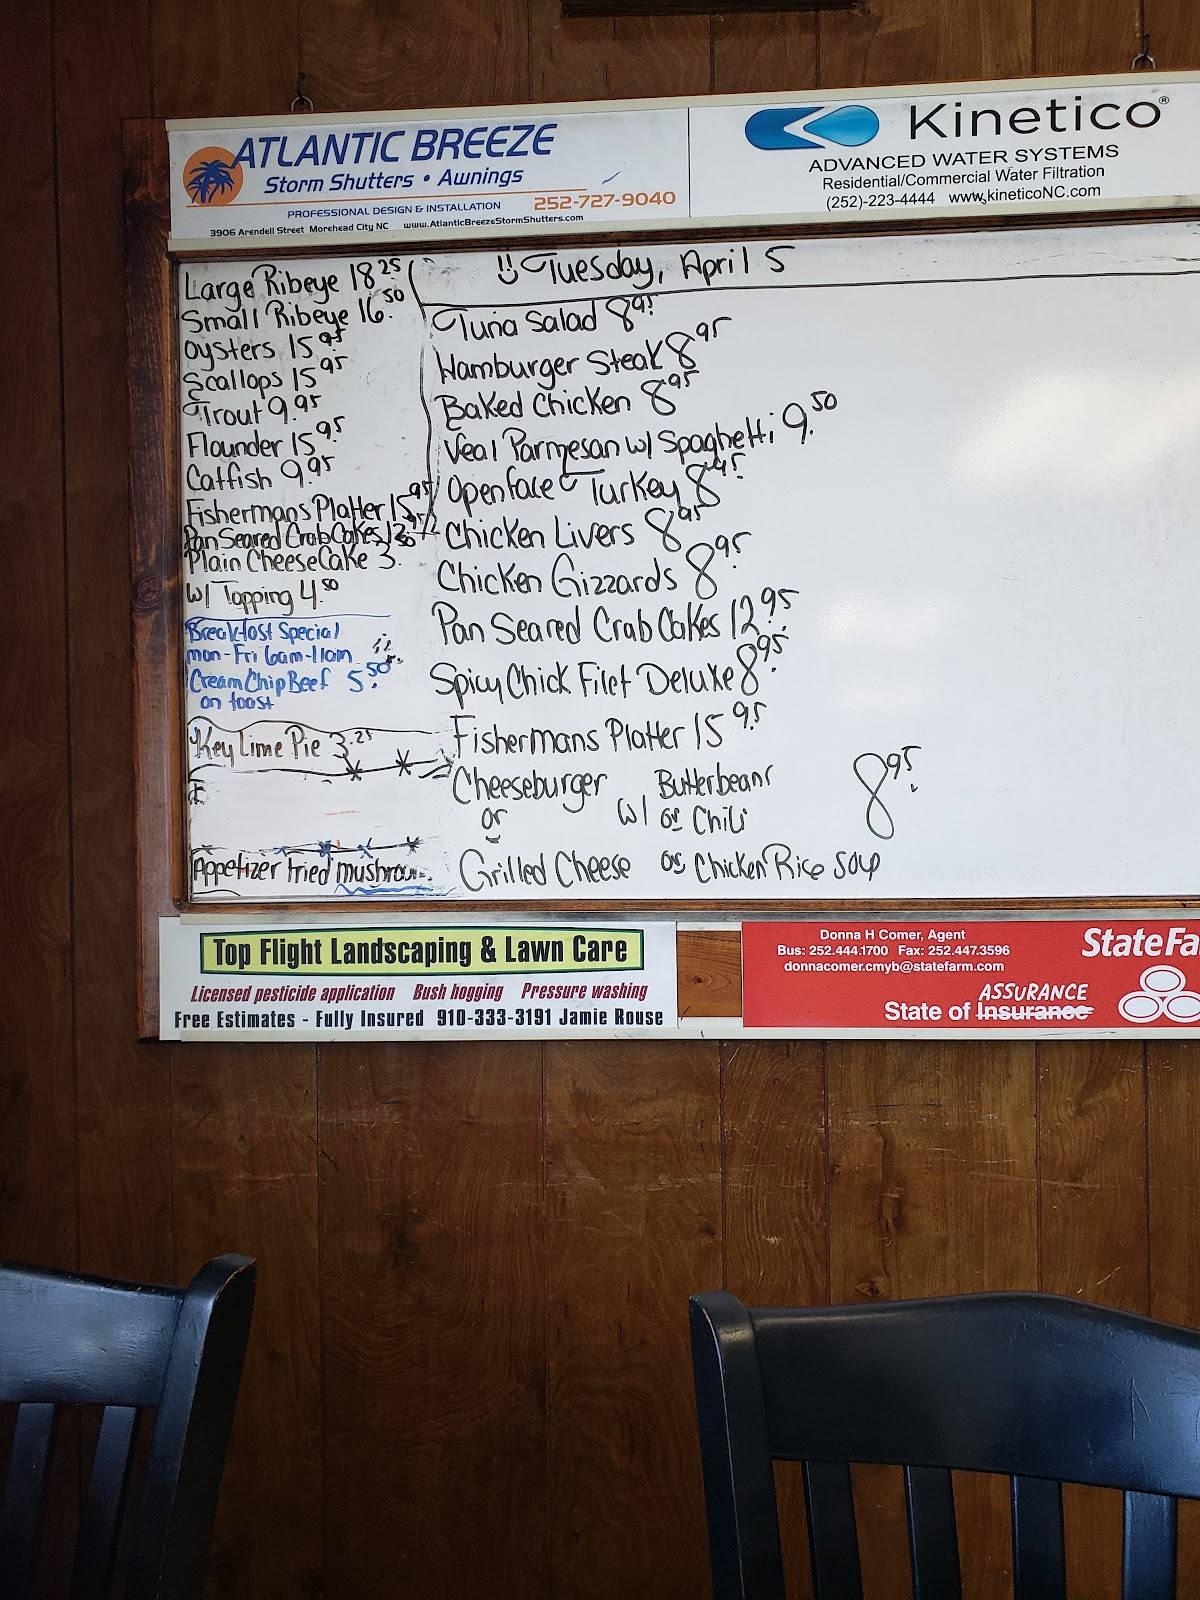 ATLANTIC BREEZE
Storm Shutters • Awnings
PROFESSIONAL DESIGN & INSTALLATION 252-727-9040
3906 Arendell Street Morehead City NC www.AtlanticBreezeStormShutters.com
Kinetico®
ADVANCED WATER SYSTEMS
Residential/Commercial Water Filtration
(252)-223-4444 www.kineticoNC.com
Large Ribeye 18.25
Small Ribeye 16.50
Oysters 15.95
Scallops 15.95
Trout 9.95
Flounder 15.95
Catfish 9.95
Fishermans Platter 15.95
Pan Seared Crab Cakes 12.95
Plain CheeseCake 3.50
w/ Topping 4.50
Breakfast Special
mon-Fri 6am-11am
Cream Chip Beef 5.50
on toast
Key Lime Pie 3.25
Appetizer fried mushroom.
Tuesday, April 5
Tuna Salad 8.95
Hamburger Steak 8.95
Baked Chicken 8.95
Veal Parmesan w/ Spaghetti 9.50
Openface Turkey 8.95
Chicken Livers 8.95
Chicken Gizzards 8.95
Pan Seared Crab Cakes 12.95
Spicy Chick Filet Deluxe 8.95
Fishermans Platter 15.95
Cheeseburger w/ Butterbeans 8.95
or or Chili
Grilled Cheese or Chicken Rice soup
Top Flight Landscaping & Lawn Care
Licensed pesticide application Bush hogging Pressure washing
Free Estimates - Fully Insured 910-333-3191 Jamie Rouse
Donna H Comer, Agent
Bus: 252.444.1700 Fax: 252.447.3596
donnacomer.cmyb@statefarm.com
StateFa
ASSURANCE
State of Insurance